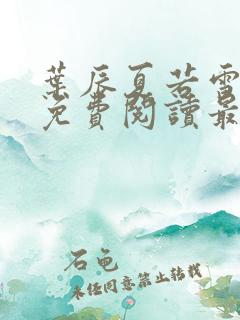 葉辰夏若雪
免費閱讀最
石色
未經同意禁止轉載